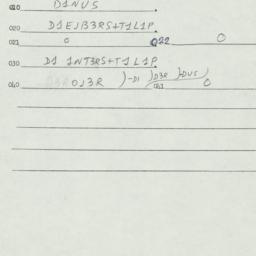 010 D1NUS .
020 D1EJB3RS+T1L1P.
021 0 022 0
030 D1 1NT3RS+T1L1P.
040 OJ3R )-D1 )D3R )-DUS)
041 0